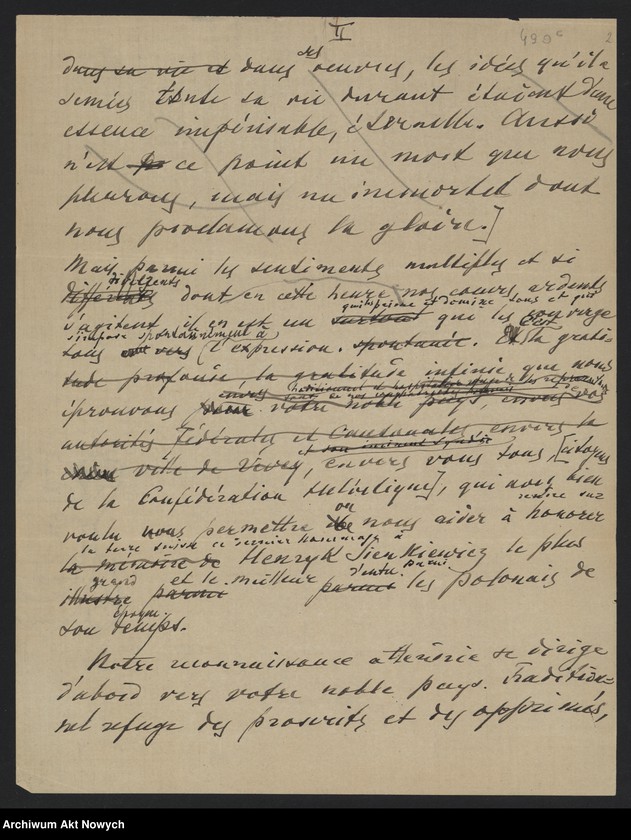 II
490c 2
dans sa vie et dans ses oeuvres, les idées qu'il a
semées toute sa vie durant étaient d'une
essence impérissable, éternelle. Aussi
n'est ce point un mort que nous
pleurons, mais un immortel dont
nous proclamons la gloire.]
Mais parmi les sentiments multiples et si
différents
différents dont en cette heure nos coeurs ardents
qui prime et domine tous et qui
s'agitent il en est un surtout qui les
s'impose spontanément à c'est
tous vers l'expression spontanée. la grati-
tude profonde, la gratitude infinie que nous
envers
éprouvons pour votre noble pays, envers vos
autorités Fédérales et Cantonales, envers la
et son éminent Syndic
ville de Vevey, envers vous tous, [citoyens
de la Confédération Helvétique], qui nous bien
ou rendre sur
voulu nous permettre nous aider à honorer
la terre suisse ce dernier hommage à
la mémoire de Henryk Sienkiewicz le plus
grand et le meilleur d'entre parmi
illustre parmi parmi les polonais de
époque.
son temps.
Notre reconnaissance attendrie se dirige
d'abord vers votre noble pays. Tradition-
nel refuge des proscrits et des opprimés,
Archiwum Akt Nowych